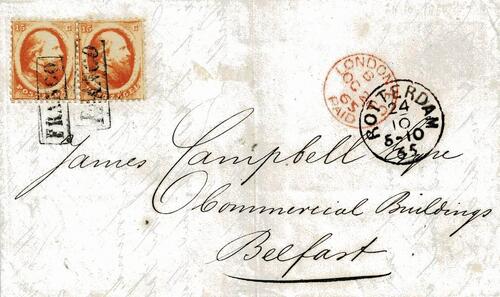 15 15
POSTZEGEL
FRANCO FRANCO
LONDON
B
OC 65
PAID
ROTTERDAM
24
10
8-10
65
James Campbell Esqre
Commercial Buildings
Belfast